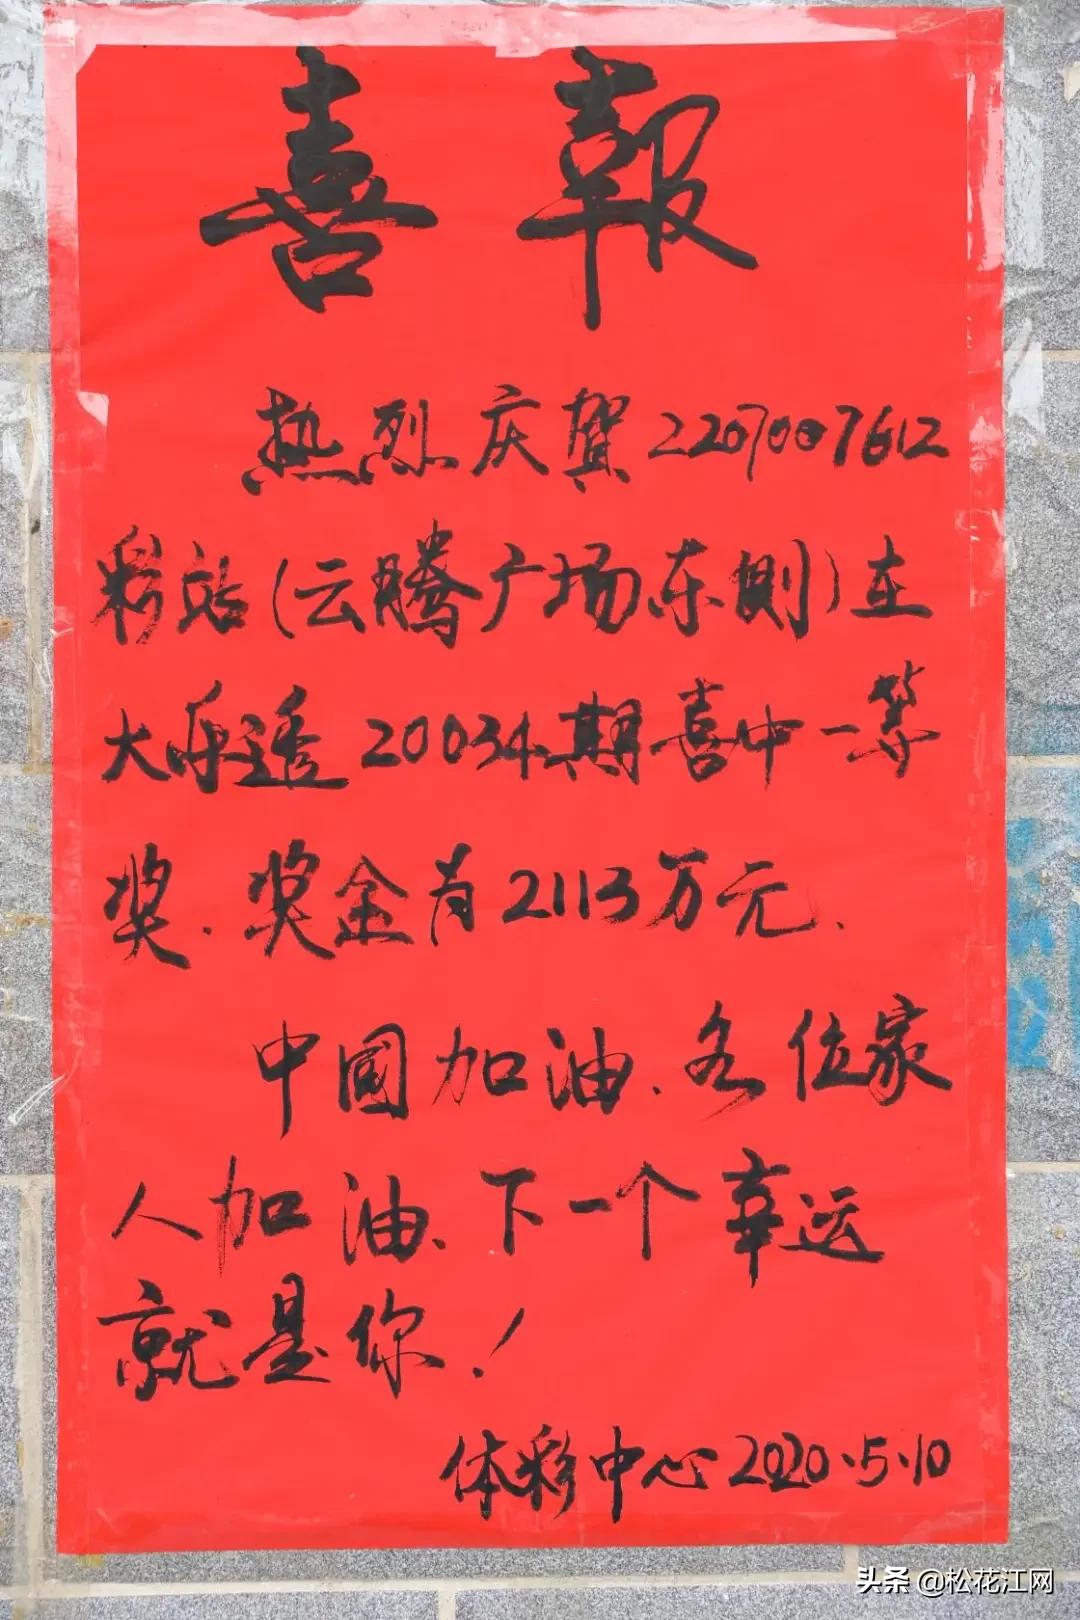 喜報
热烈庆賀2207007612
彩站(云腾广场东侧)在
大乐透20034期喜中一等
奖.奖金为2113万元.
中國加油.各位家
人加油.下一个幸运
就是你!
体彩中心2020.5.10
头条 @松花江网